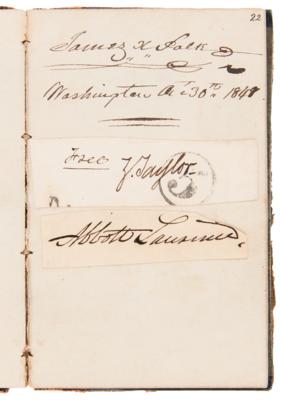 22
James K Polk
Washington Oct 30th 1848
Free Z. Taylor
5
Abbott Lawrence.